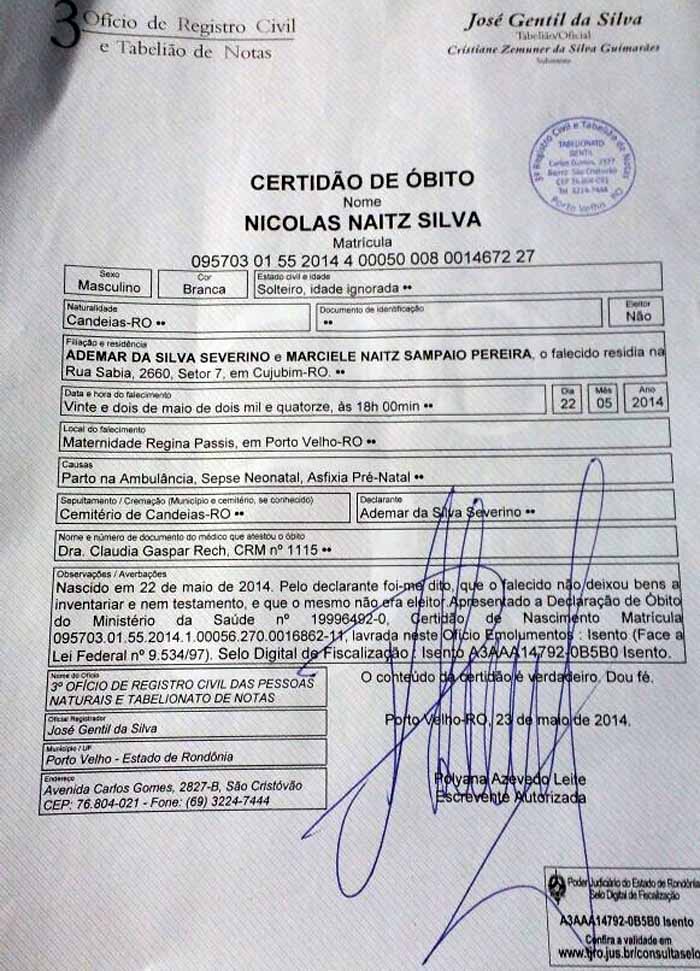 3º Ofício de Registro Civil
e Tabelião de Notas
José Gentil da Silva
Tabelião/Oficial
Cristiane Zemuner da Silva Guimarães
Substituta
3º Registro Civil e Tabelião de Notas
TABELIONATO
GENTIL
Carlos Gomes,
Bairro: São Cristóvão
CEP 76.804-021
Tel 3224-7444
Porto Velho
CERTIDÃO DE ÓBITO
Nome
NICOLAS NAITZ SILVA
Matrícula
095703 01 55 2014 4 00050 008 0014672 27
Sexo
Masculino
Cor
Branca
Estado civil e idade
Solteiro, idade ignorada ••
Naturalidade
Candeias-RO ••
Documento de identificação
••
Eleitor
Não
Filiação e residência
ADEMAR DA SILVA SEVERINO e MARCIELE NAITZ SAMPAIO PEREIRA, o falecido residia na
Rua Sabia, 2660, Setor 7, em Cujubim-RO. ••
Data e hora do falecimento
Vinte e dois de maio de dois mil e quatorze, às 18h 00min ••
Dia
22
Mês
05
Ano
2014
Local do falecimento
Maternidade Regina Passis, em Porto Velho-RO ••
Causas
Parto na Ambulância, Sepse Neonatal, Asfixia Pré-Natal ••
Sepultamento / Cremação (Município e cemitério, se conhecido)
Cemitério de Candeias-RO ••
Declarante
Ademar da Silva Severino ••
Nome e número de documento do médico que atestou o óbito
Dra. Claudia Gaspar Rech, CRM nº 1115 ••
Observações / Averbações
Nascido em 22 de maio de 2014. Pelo declarante foi-me dito, que o falecido não deixou bens a
inventariar e nem testamento, e que o mesmo não era eleitor.Apresentado a Declaração de Óbito
do Ministério da Saúde nº 19996492-0, Certidão de Nascimento Matrícula
095703.01.55.2014.1.00056.270.0016862-11, lavrada neste Ofício Emolumentos : Isento (Face a
Lei Federal nº 9.534/97). Selo Digital de Fiscalização : Isento A3AAA14792-0B5B0 Isento.
Nome do Ofício
3º OFÍCIO DE REGISTRO CIVIL DAS PESSOAS
NATURAIS E TABELIONATO DE NOTAS
Oficial Registrador
José Gentil da Silva
Município / UF
Porto Velho - Estado de Rondônia
Endereço
Avenida Carlos Gomes, 2827-B, São Cristóvão
CEP: 76.804-021 - Fone: (69) 3224-7444
O conteúdo da certidão é verdadeiro. Dou fé.
Porto Velho-RO, 23 de maio de 2014.
Polyana Azevedo Leite
Escrevente Autorizada
Poder Judiciário do Estado de Rondônia
Selo Digital de Fiscalização
A3AAA14792-0B5B0 Isento
Confira a validade em
www.tjro.jus.br/consultaselo